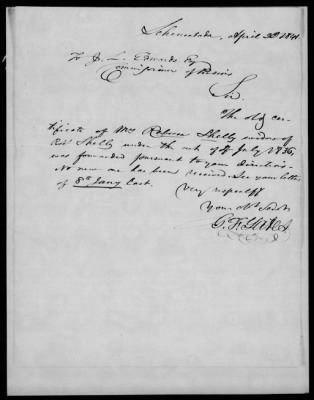 Schenectada, April 30th 1841
To J. L. Edwards Esq
Commissioner of Pensions
Sir.
The old cer-
tificate of Mrs Shelly widow of
Robt Shelly under the act of 4 July 1836,
was forwarded pursuant to your directions.
No new one has been received. See your letter
of 8th Jany last.
Very respectf
Your Ob. Servt
G. F.